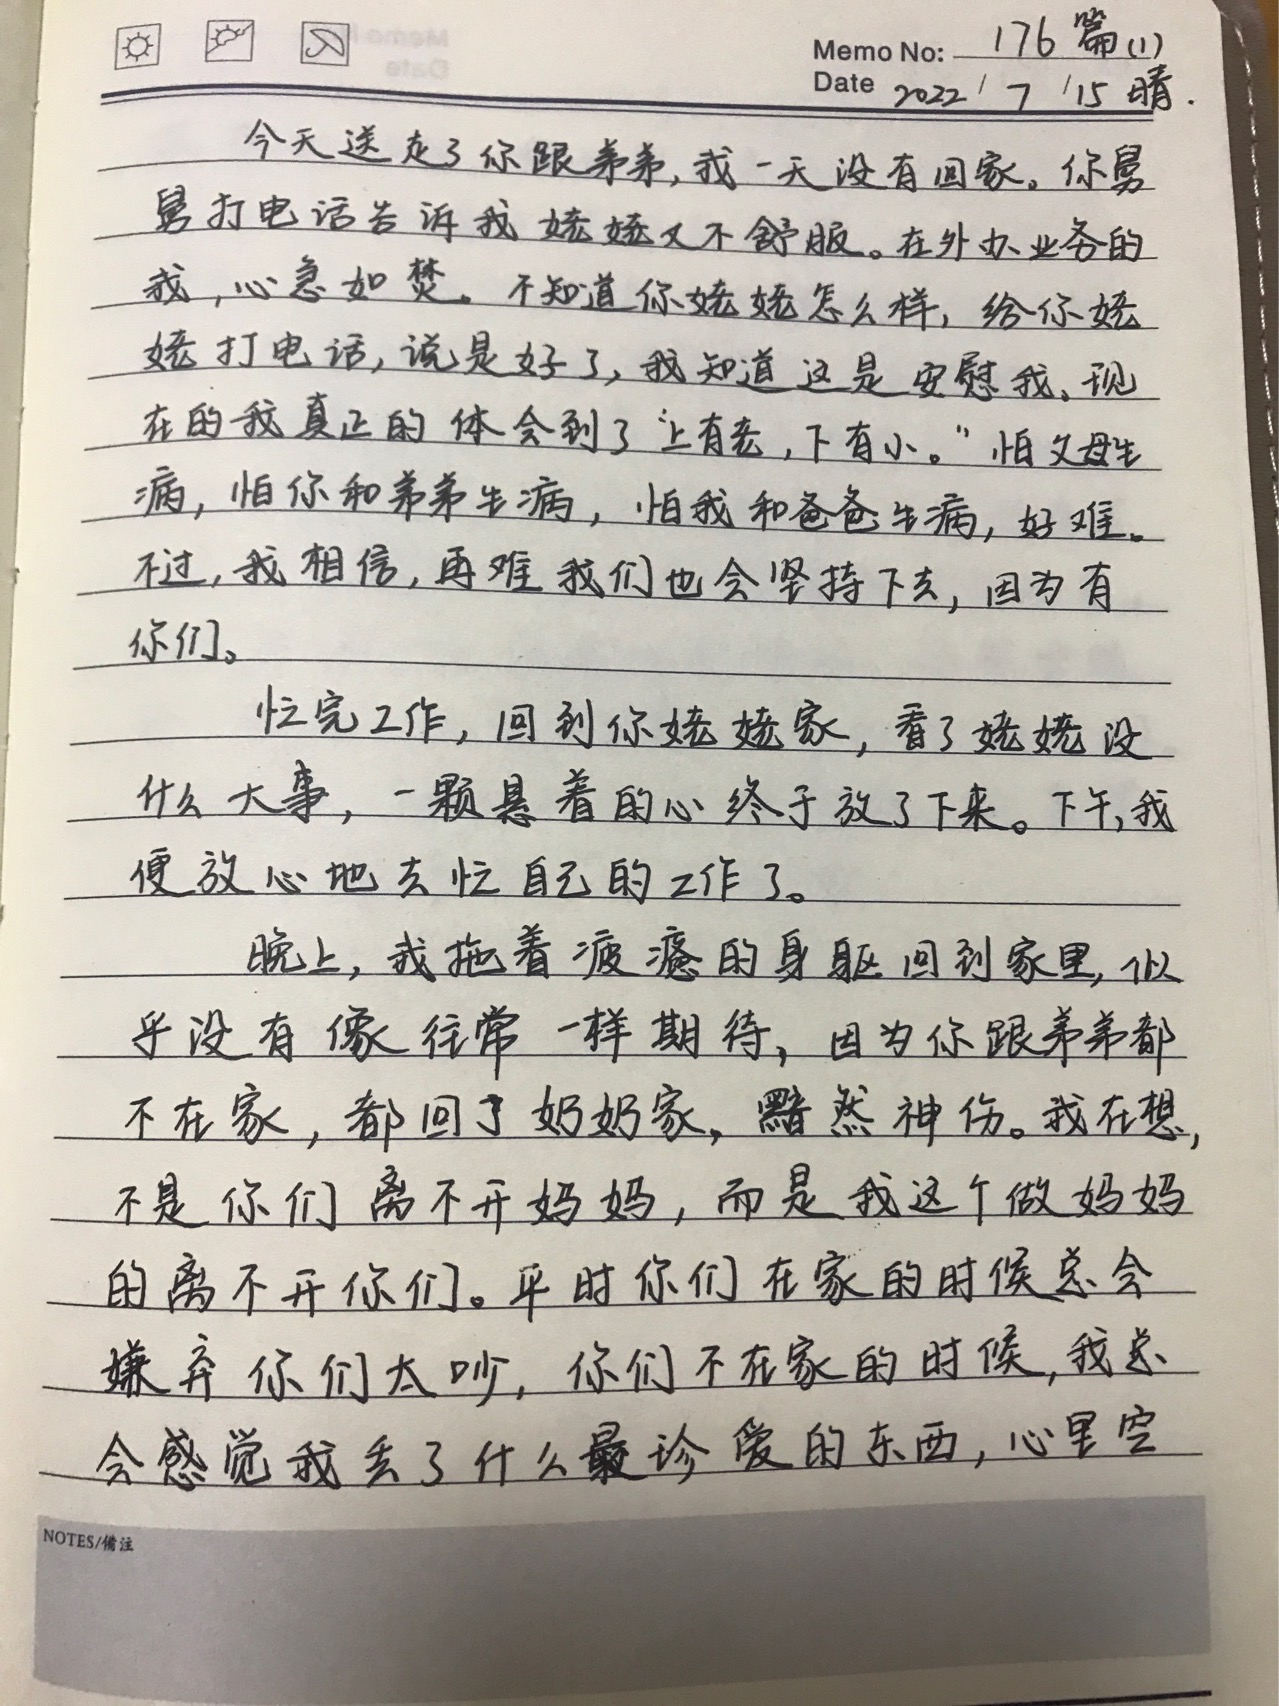 Memo No: 176篇(1)
Date 2022/7/15 晴.
今天送走了你跟弟弟,我一天没有回家。你舅
舅打电话告诉我姥姥又不舒服。在外办业务的
我,心急如焚。不知道你姥姥怎么样,给你姥
姥打电话,说是好了,我知道这是安慰我、现
在的我真正的体会到了“上有老,下有小。”怕父母生
病,怕你和弟弟生病,怕我和爸爸生病,好难。
不过,我相信,再难我们也会坚持下去,因为有
你们。
忙完工作,回到你姥姥家,看了姥姥没
什么大事,一颗悬着的心终于放了下来。下午,我
便放心地去忙自己的工作了。
晚上,我拖着疲惫的身躯回到家里,似
乎没有像往常一样期待,因为你跟弟弟都
不在家,都回了奶奶家,黯然神伤。我在想,
不是你们离不开妈妈,而是我这个做妈妈
的离不开你们。平时你们在家的时候总会
嫌弃你们太吵,你们不在家的时候,我总
会感觉我丢了什么最珍爱的东西,心里空
NOTES/備注